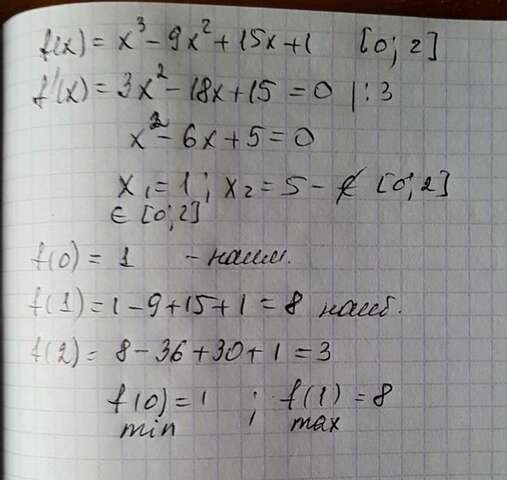 f(x) = x³ - 9x² + 15x + 1 [0; 2]
f'(x) = 3x² - 18x + 15 = 0 | : 3
x² - 6x + 5 = 0
x₁ = 1; x₂ = 5 - ∉ [0; 2]
∈ [0; 2]
f(0) = 1 - наим.
f(1) = 1 - 9 + 15 + 1 = 8 наиб.
f(2) = 8 - 36 + 30 + 1 = 3
f(0) = 1 ; f(1) = 8
min max